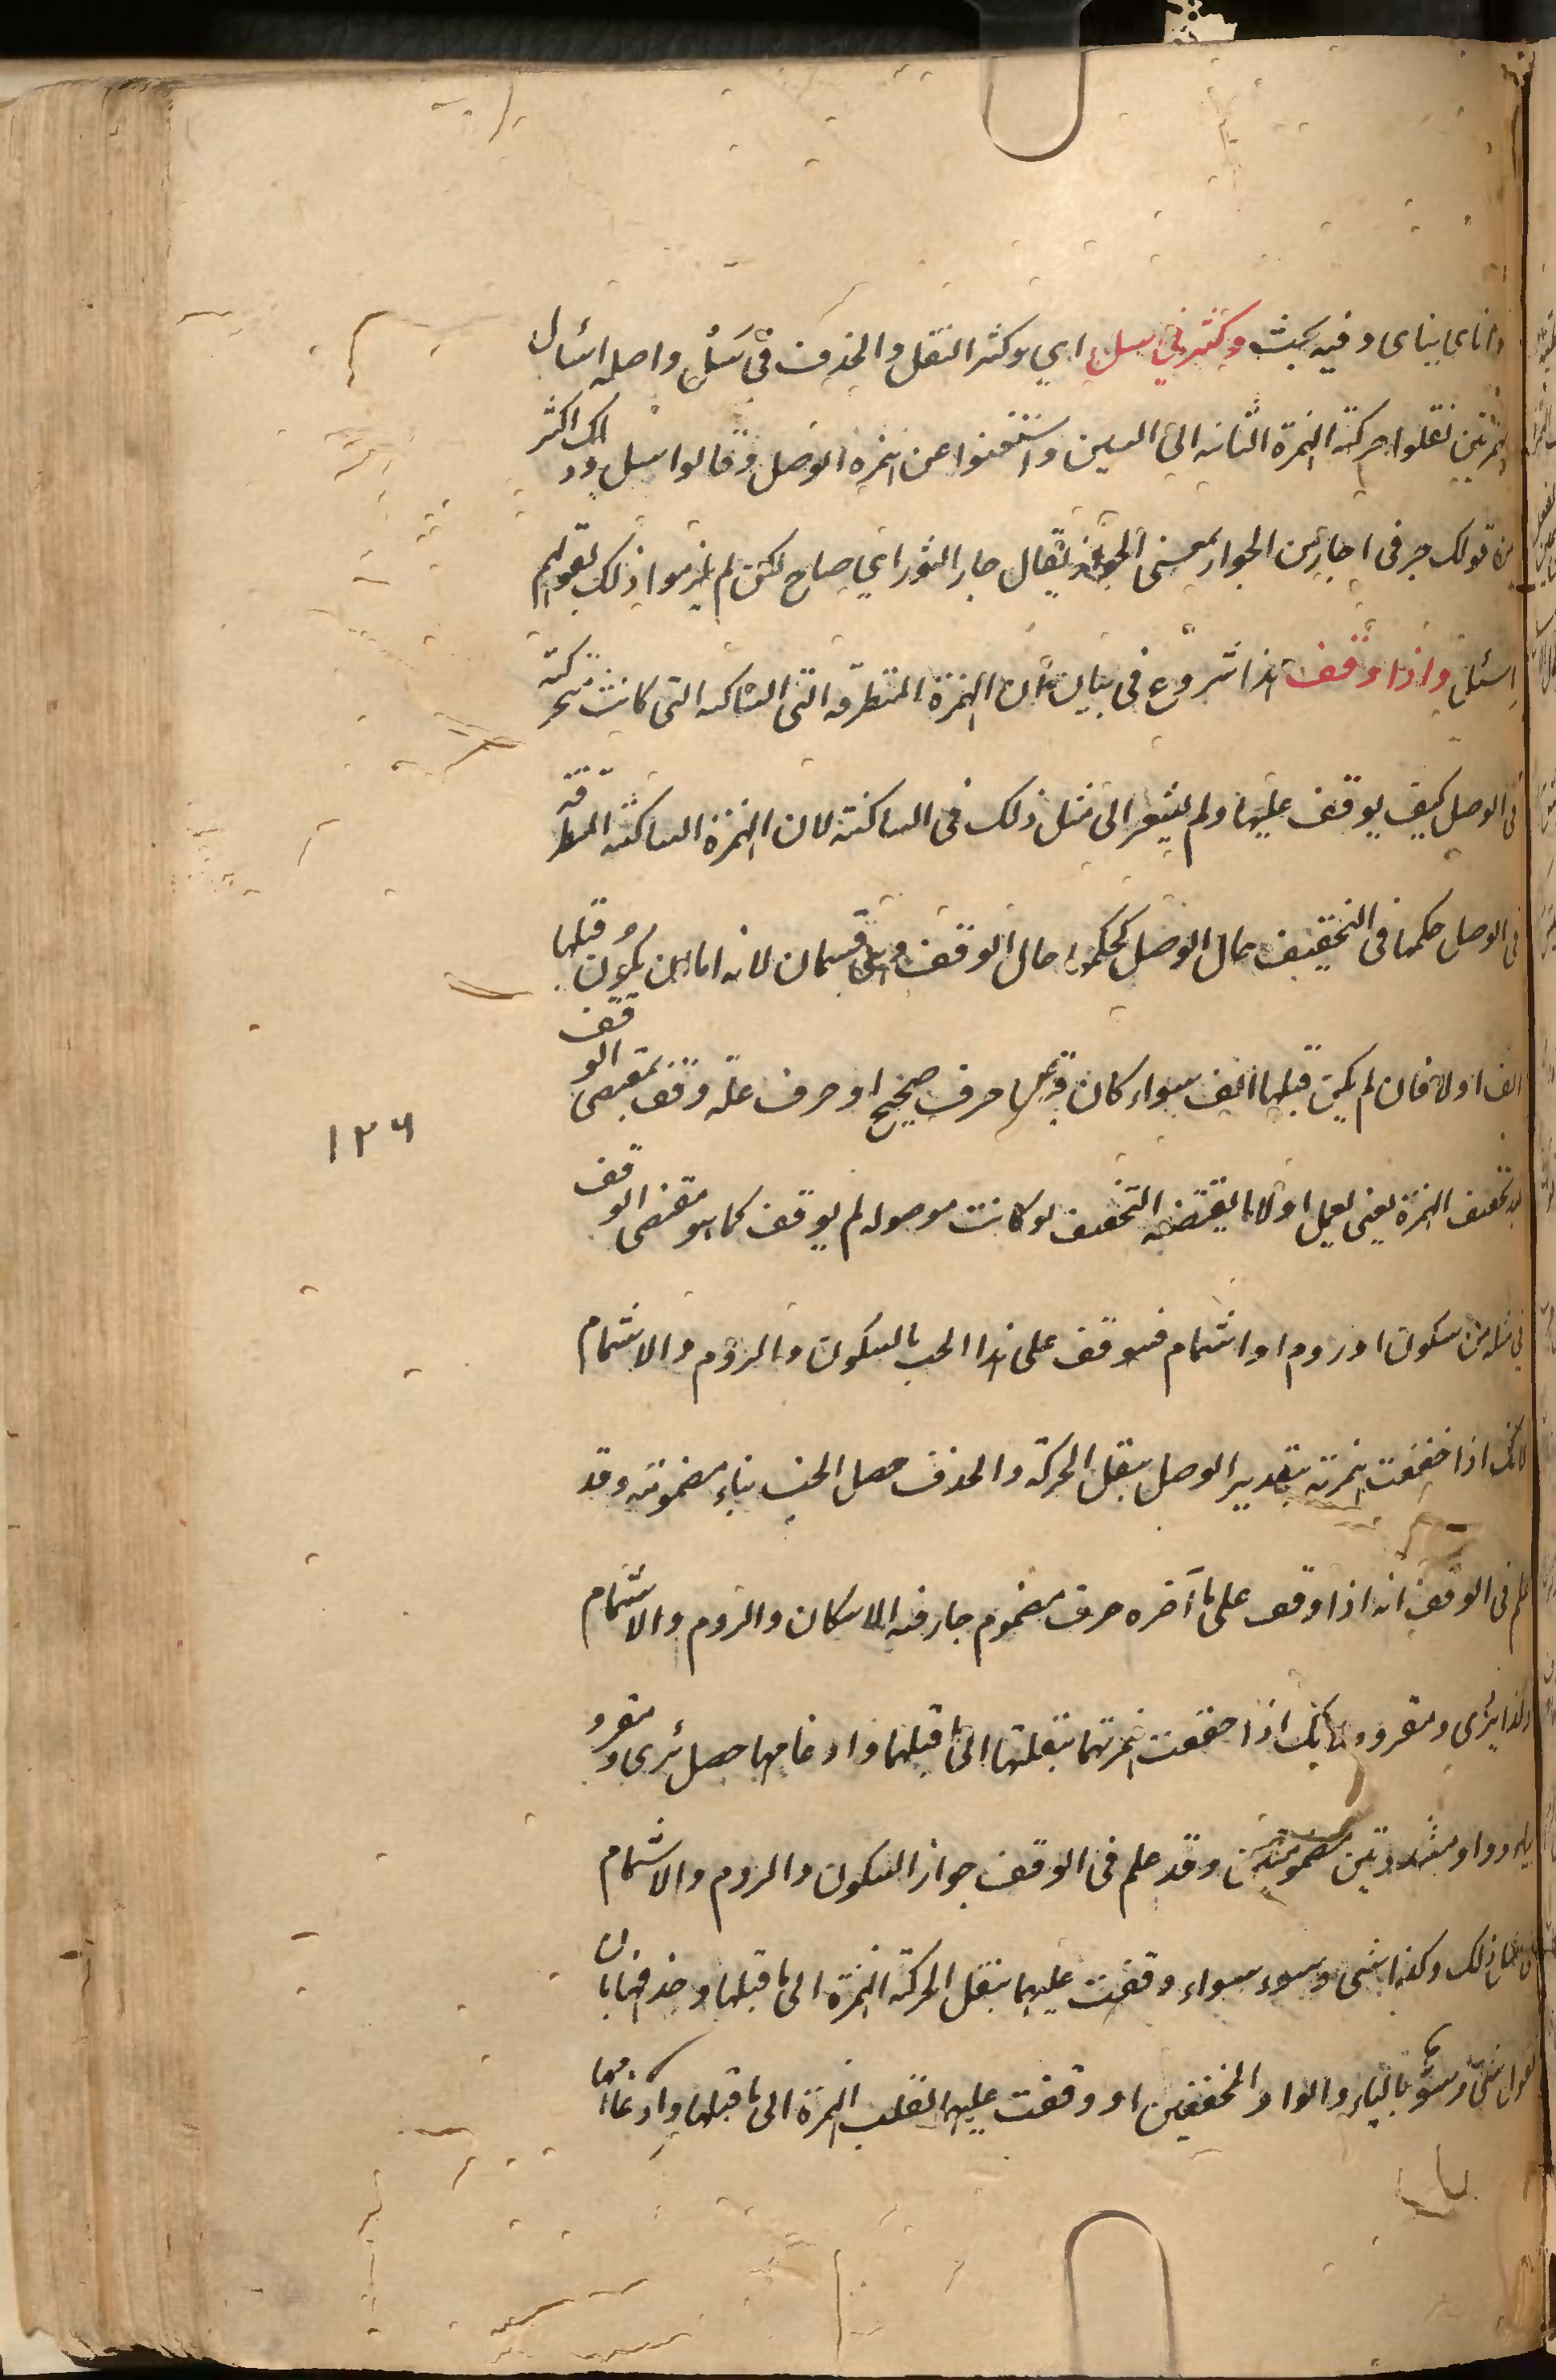 وانأى ينأى وفيه بحث وكثر في سل اي وكثر النقل والحذف في سل واصله اسأل
بهمزتين نقلوا حركة الهمزة الثانيه الى السين واستغنوا عن همزه الوصل وقالوا سل وذلك اكثر
من قولك جر في اجأر من الجوار بمعنى يقال جار الثور اي صاح لكن لم يلزموا ذلك لقولهم
اسئل واذا وقف هذا شروع في بيان ان الهمزة المتطرفه التي كانت متحركة
في الوصل كيف يوقف عليها ولم يشعر الى مثل ذلك في الساكنة لان الهمزة الساكنه المتطرفة
في الوصل حكمها في التخفيف حال الوصل كحكمها حال الوقف وهي قسمان لانه اما ان يكون قبلها
الف اولا فان لم يكن قبلها الف سواء كان قبلها حرف صحيح او حرف علة وقف بمقتضى الوقف
بعد تخفيف الهمزة يعني يعمل اولا ما يقتضيه التخفيف لو كانت موصوله ثم يوقف كما هو مقتضى الوقف
في مثله من سكون او روم او اشمام فيوقف على هذا الخب بالسكون والروم والاشمام
لانك اذا خففت همزته بتقدير الوصل بنقل الحركة والحذف حصل الخب بباء مضمومة وقد
علم في الوقف انه اذا وقف على ما آخره حرف مضموم جاز فيه الاسكان والروم والاشمام
وكذا برى ومقرو لانك اذا خففت همزتهما بنقلها الى ما قبلها وادغامها حصل برى ومقرو
بياء وواو مشددتين مضمومتين وقد علم في الوقف جواز السكون والروم والاشمام
في مثل ذلك وكذا شئ وسوء سواء وقفت عليهما بنقل الحركة الهمزة الى ما قبلها وحذفها بان
تقول شى وسو بالياء والواو المخففين او وقفت عليهما بقلب الهمزة الى ما قبلها وادغامها
١٢٦